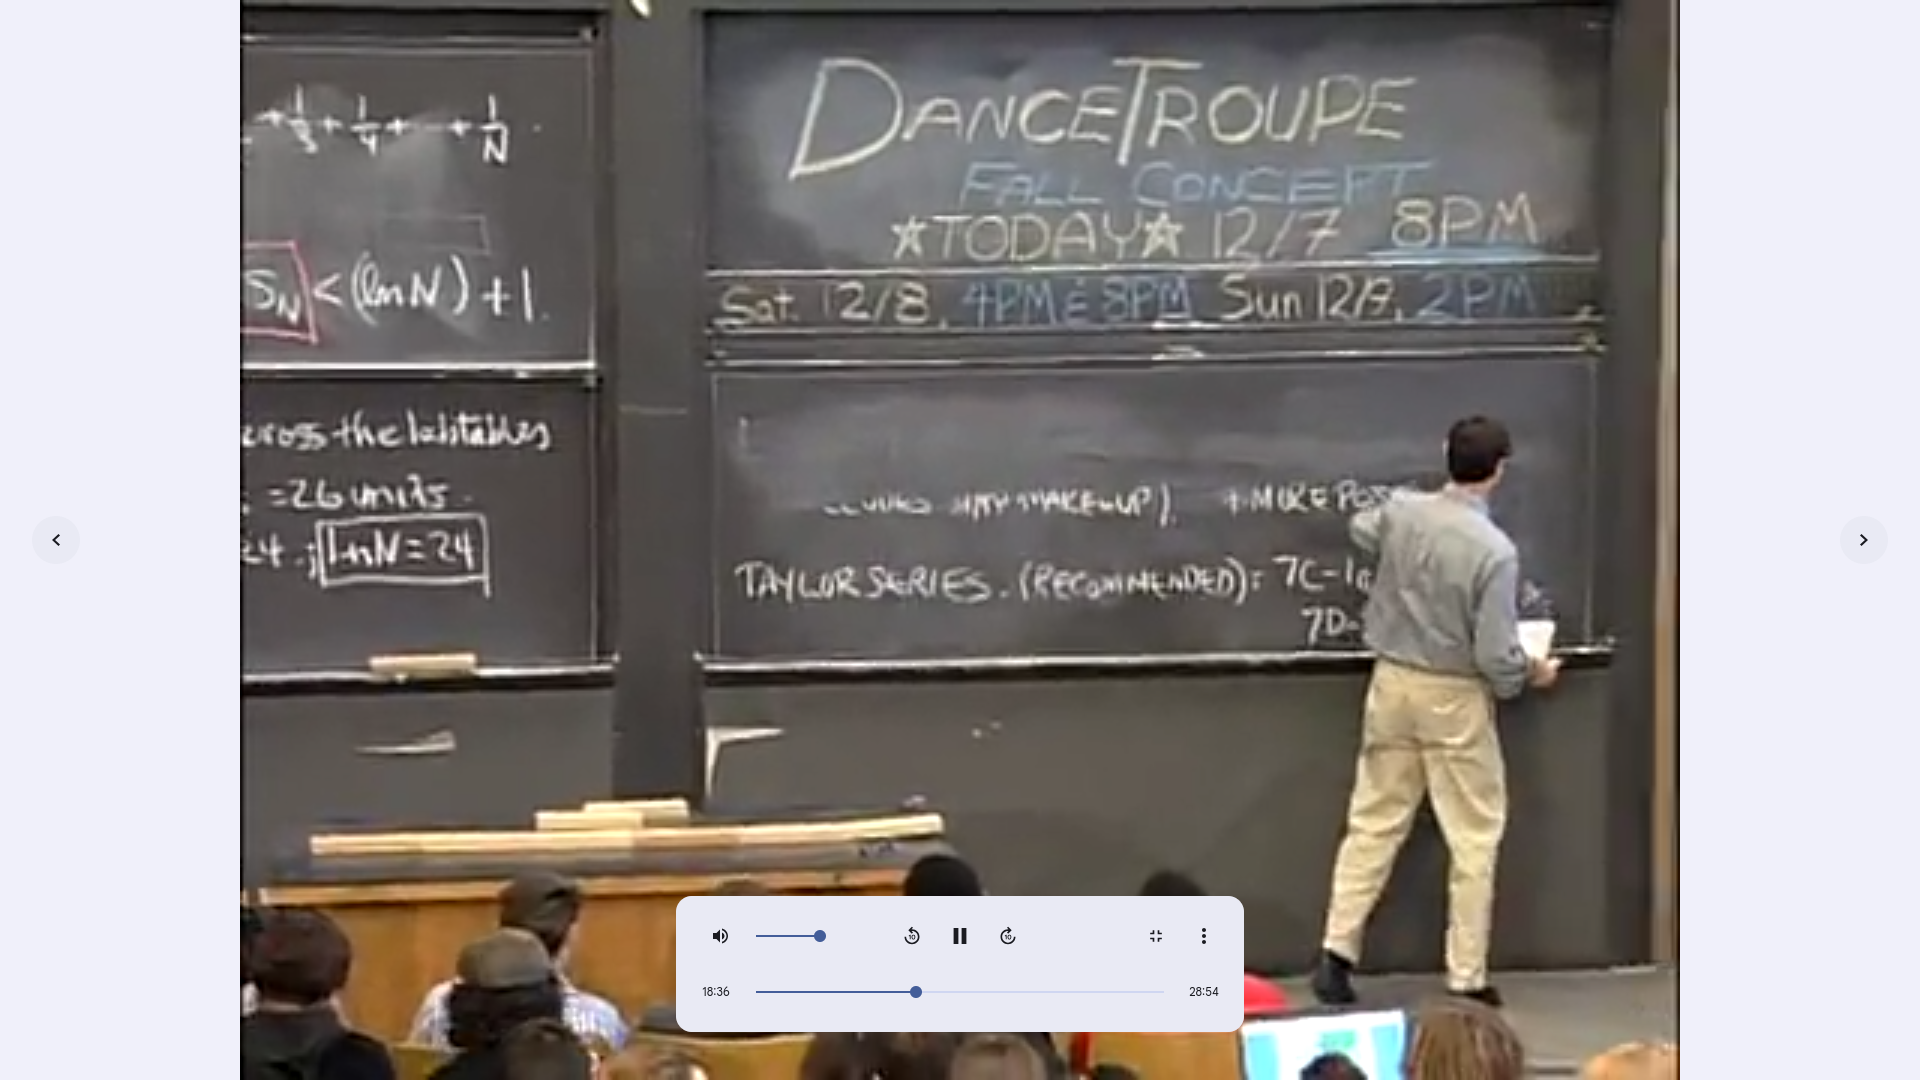 + 1/3 + 1/4 + ... + 1/N
S_N < (ln N) + 1.
across the labtables
= 26 units.
24. ; ln N = 24
DANCETROUPE
FALL CONCERT
★TODAY★ 12/7 8PM
Sat. 12/8, 4PM & 8PM Sun 12/9, 2PM
MAKEUP). + MORE
TAYLOR SERIES. (RECOMMENDED): 7C-1a
7D-
10
10
18:36
28:54